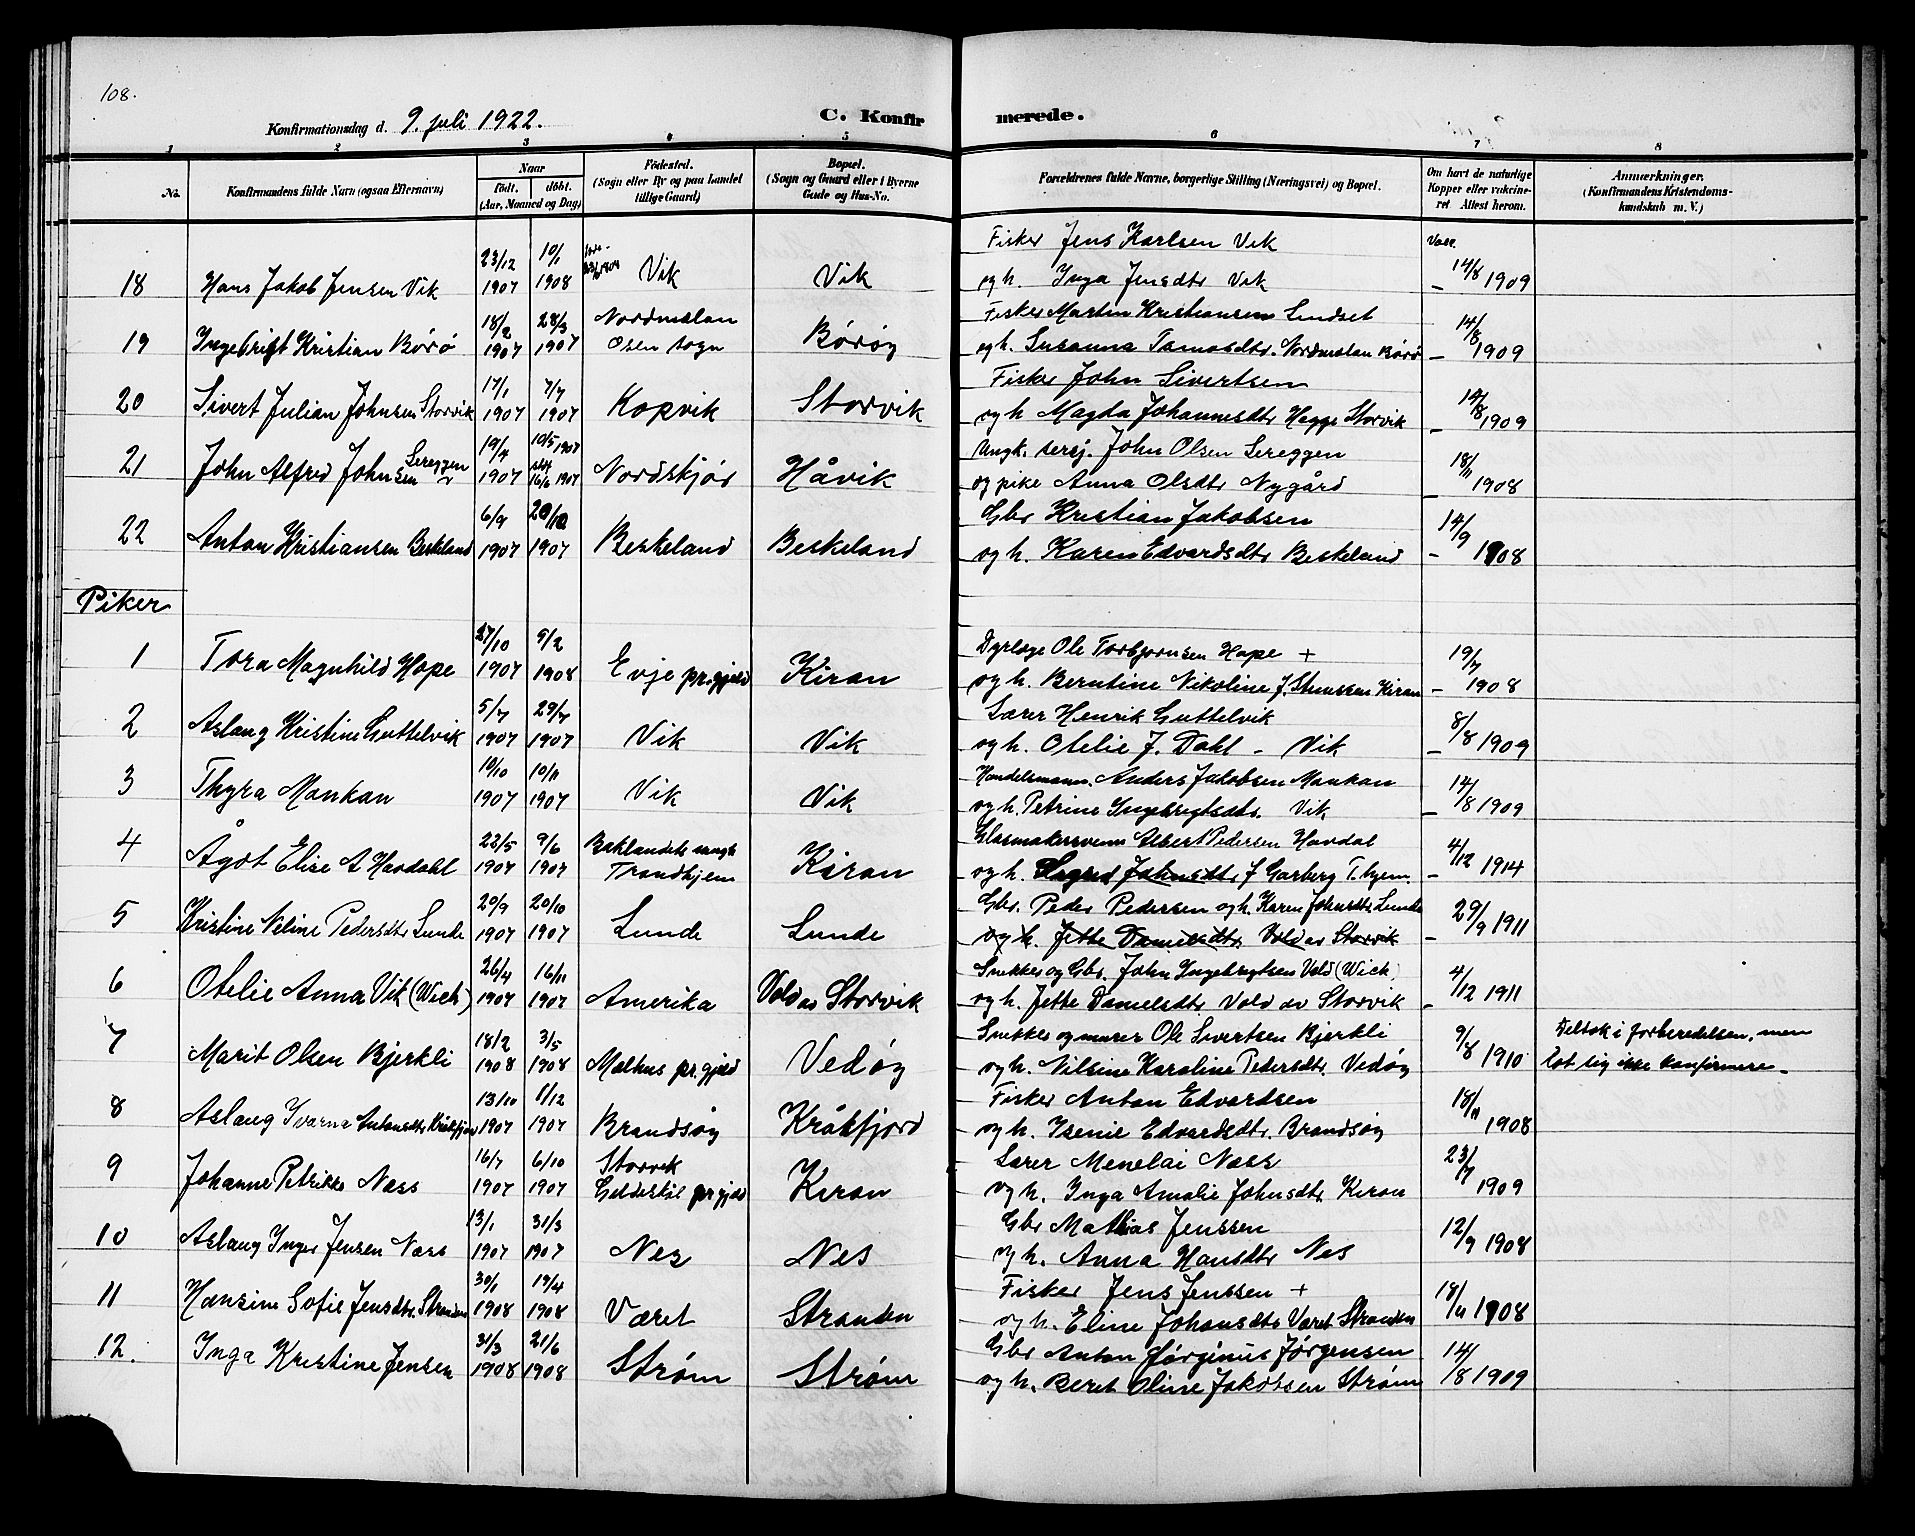 108.
Konfirmationsdag d. 9. juli 1922.
C. Konfirmerede.
1 2 3 4 5 6 7 8
No.
Konfirmandens fulde Navn (ogsaa Efternavn)
Naar
født. døbt.
(Aar, Maaned og Dag)
Fødested.
(Sogn eller By og paa Landet tillige Gaard)
Bopæl.
(Sogn og Gaard eller i Byerne Gade og Hus-No.
Forældrenes fulde Navne, borgerlige Stilling (Næringsvei) og Bopæl.
Om havt de naturlige Kopper eller vakcineret Attest herom.
Anmærkninger.
(Konfirmandens Kristendomskundskab m. V.)
18 Hans Jakob Jensen Vik 23/12 1907 10/1 1908 Vik Vik Fisker Jens Karlsen Vik
og h. Inga Jensdtr Vik Vacc. - 14/8 1909
19 Ingebrigt Kristian Børø 18/2 1907 28/3 1907 Nordmelan Osen sogn Børøy Fisker Martin Kristiansen Sundset
og h. Susanna Tomasdtr. Nordmelan Børø - 14/8 1909
20 Sivert Julian Johnsen Storvik 17/1 1907 7/7 1907 Kopvik Storvik Fisker John Sivertsen
og h Magda Johannesdtr Hegge Storvik - 14/8 1909
21 John Alfred Johnsen Sereggen 19/4 1907 10/5 1907 stf 16/6 1907 Nordskjør Håvik Ungk. sersj. John Olsen Sereggen
og pike Anna Olsdtr Nygård - 18/11 1908
22 Anton Kristiansen Beskeland 6/9 1907 20/10 1907 Beskeland Beskeland Gbr Kristian Jakobsen
og h. Karen Edvardsdtr Beskeland - 14/9 1908
Piker
1 Tora Magnhild Hope 27/10 1907 9/2 1908 Evje pr.gjeld Kiran Dyrlæge Ole Torbjørnsen Hope +
og h. Berntine Nikoline J. Kiran - 19/7 1908
2 Aslaug Kristine Guttelvik 5/7 1907 29/7 1907 Vik Vik Lærer Henrik Guttelvik
og h. Otelie J. Dahl - Vik - 8/8 1909
3 Thyra Monkan 10/10 1907 10/11 1907 Vik Vik Handelsmann. Anders Jakobsen Monkan
og h. Petrine Ingebrigtsdtr. Vik 14/8 1909
4 Ågot Elise A Havdahl 22/5 1907 9/6 1907 Baklandets menigh Trondhjem Kiran Glasmakersvenn Albert Pedersen Havdal
og h. Sigrid Johnsdtr J Garberg T.hjem. - 4/12 1914
5 Kristine Neline Pedersdtr Lunde 20/9 1907 20/10 1907 Lunde Lunde Gbr. Peder Pedersen og h. Karen Johnsdtr Lunde
og h. Jette Danielsdtr Vold av Storvik - 29/9 1911
6 Otelie Anna Vik (Wich) 26/4 1907 16/11 1907 Amerika Vold av Storvik Snekker og Gbr. John Ingebrigtsen Vold (Wich)
og h. Jette Danielsdtr Vold av Storvik - 4/12 1911
7 Marit Olsen Bjerkli 18/2 1908 3/5 1908 Melhus pr.gjeld Vedøy Snekker og murer Ole Sivertsen Bjerkli
og h. Nilsine Karoline Pedersdtr. Vedøy 9/8 1910 Deltok i forberedelsen, men lot sig ikke konfirmere.
8 Aslaug Ivarna Antonsdtr Kråkfjord 13/10 1907 1/12 1907 Brandsøy Kråkfjord Fisker Anton Edvardsen
og h. Isenie Edvardsdtr. Brandsøy 18/11 1908
9 Johanne Petrikke Næss 16/7 1907 6/10 1907 Storvik Gildeskål pr.gjeld Kiran Lærer Menelai Næss
og h. Inga Amalie Johnsdtr Kiran 23/7 1909
10 Aslaug Inger Jensen Næss 13/1 1907 31/3 1907 Nes Nes Gbr Mathias Jenssen
og h. Anna Hansdtr Nes 12/9 1908
11 Hansine Sofie Jensdtr. Stranden 30/1 1908 19/4 1908 Været Stranden Fisker Jens Jenssen +
og h. Eline Johansdtr Været Stranden 18/11 1908
12. Inga Kristine Jensen 31/3 1908 21/6 1908 Strøm Strøm Gbr Anton Jørginus Jørgensen
og h. Beret Oline Jakobsen Strøm 14/8 1909